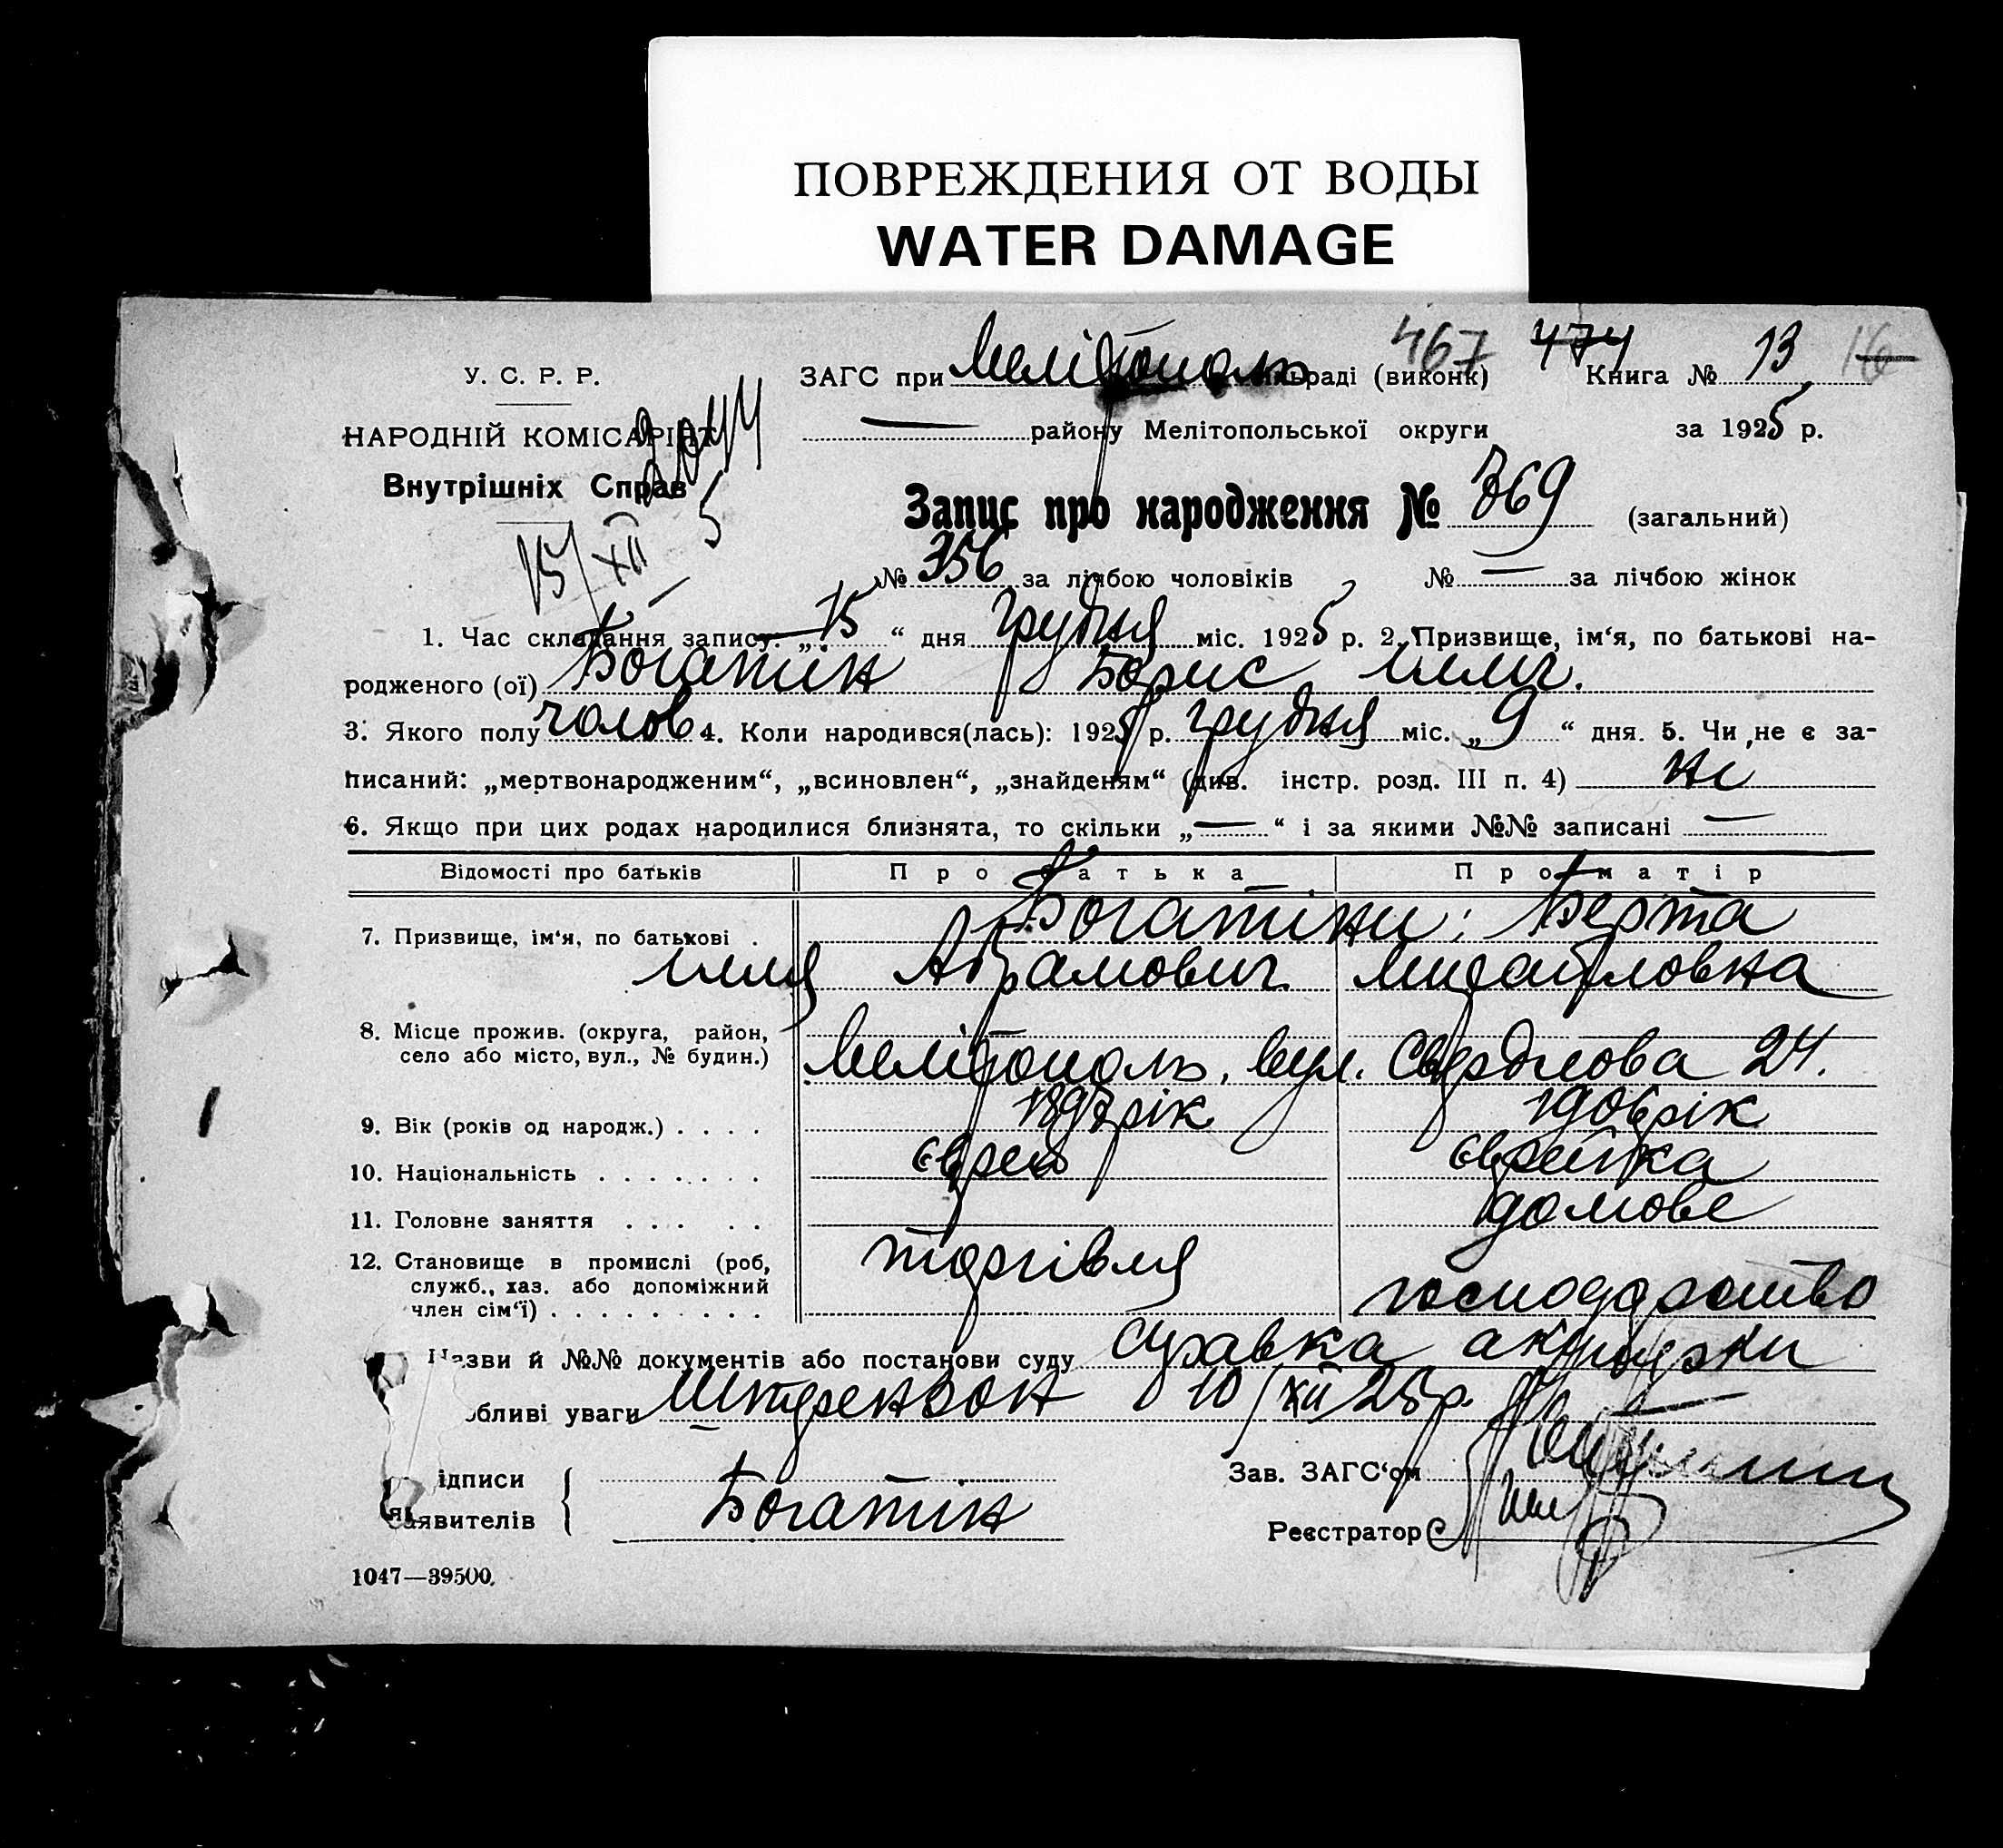 ПОВРЕЖДЕНИЯ ОТ ВОДЫ
WATER DAMAGE
467 474
У. С. Р. Р.
ЗАГС при Мелітополь міськраді (виконк) Книга № 13 16
НАРОДНІЙ КОМІСАРІЯТ
— району Мелітопольської округи за 1925 р.
Внутрішніх Справ
15/XII 5
Запис про народження № 369 (загальний)
№ 356 за лічбою чоловіків № — за лічбою жінок
1. Час складання запису. „ 15 “ дня грудня міс. 1925 р. 2. Призвище, ім‘я, по батькові на-
родженого (ої) Богатін Борис Ілліч.
3. Якого полу чолов 4. Коли народився(лась): 1925 р. грудня міс. „ 9 “ дня. 5. Чи не є за-
писаний: „мертвонародженим“, „всиновлен“, „знайденям“ (див. інстр. розд. III п. 4) ні
6. Якщо при цих родах народилися близнята, то скільки „ — “ і за якими №№ записані —
Відомості про батьків Про батька Про матір
7. Призвище, ім‘я, по батькові . Богатіни; Берта
Ілля Абрамович Михайловна
8. Місце прожив. (округа, район,
село або місто, вул., № будин.) Мелітополь, вул. Свердлова 24.
9. Вік (років од народж.) . . . . 1897 рік 1906 рік
10. Національність . . . . . . . єврей єврейка
11. Головне заняття . . . . . домове
12. Становище в промислі (роб, торгівля
служб., хаз. або допоміжний господарство
член сім‘ї) . . . . . . . . .
Назви й №№ документів або постанови суду справка акушерки
обливі уваги Штерензон 10/XII 25 р.
ідписи Зав. ЗАГС‘ом
заявителів Богатін Реєстратор
1047—39500.